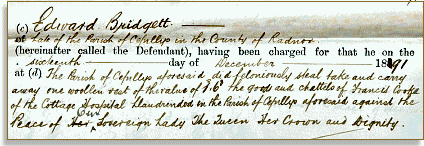 (c) Edward Bridgett.
of Late of the Parish of Cefnllys in the County of Radnor
(hereinafter called the Defendant), having been charged for that he on the
sixteenth day of December 1891
at (d) The Parish of Cefnllys aforesaid, did feloniously steal take and carry
away one woollen vest of the value of 7.6d the goods and chattels of Francis Cooke
of the Cottage Hospital Llandrindod in the Parish of Cefnllys aforesaid against the
Peace of Her Our Sovereign Lady The Queen Her Crown and Dignity.